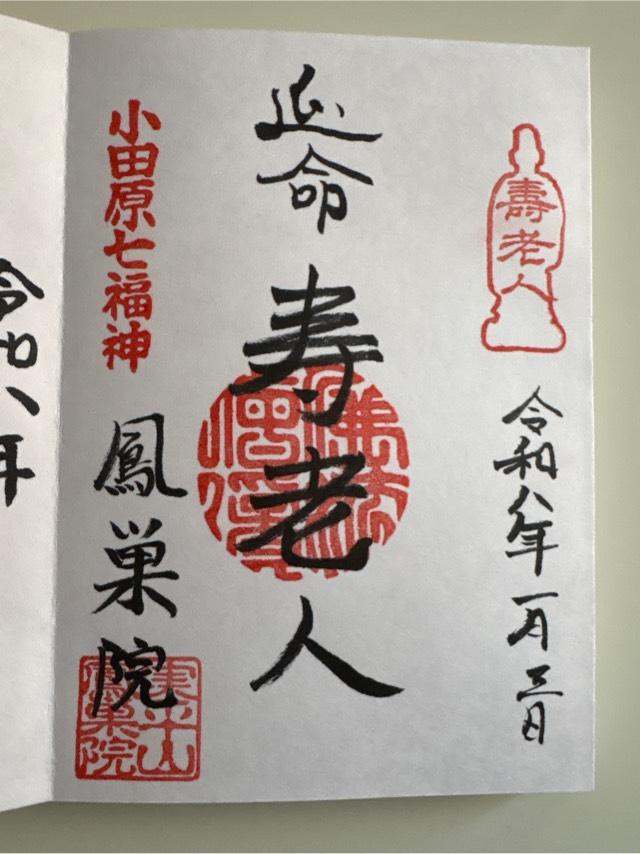 壽老人
令和八年一月三日
延命
寿老人
小田原七福神
鳳巣院
令和八年